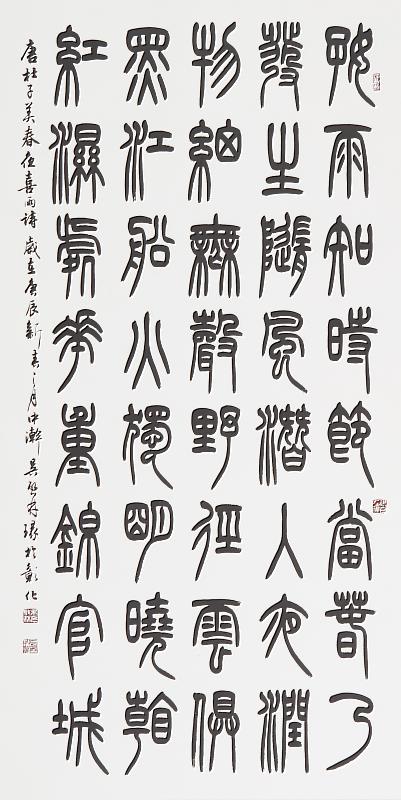 好雨知時節當春乃
發生隨風潛入夜潤
物細無聲野徑雲俱
黑江船火獨明曉看
紅濕處花重錦官城
唐杜子美春夜喜雨詩歲在庚辰新春之月中澣吳於彰化